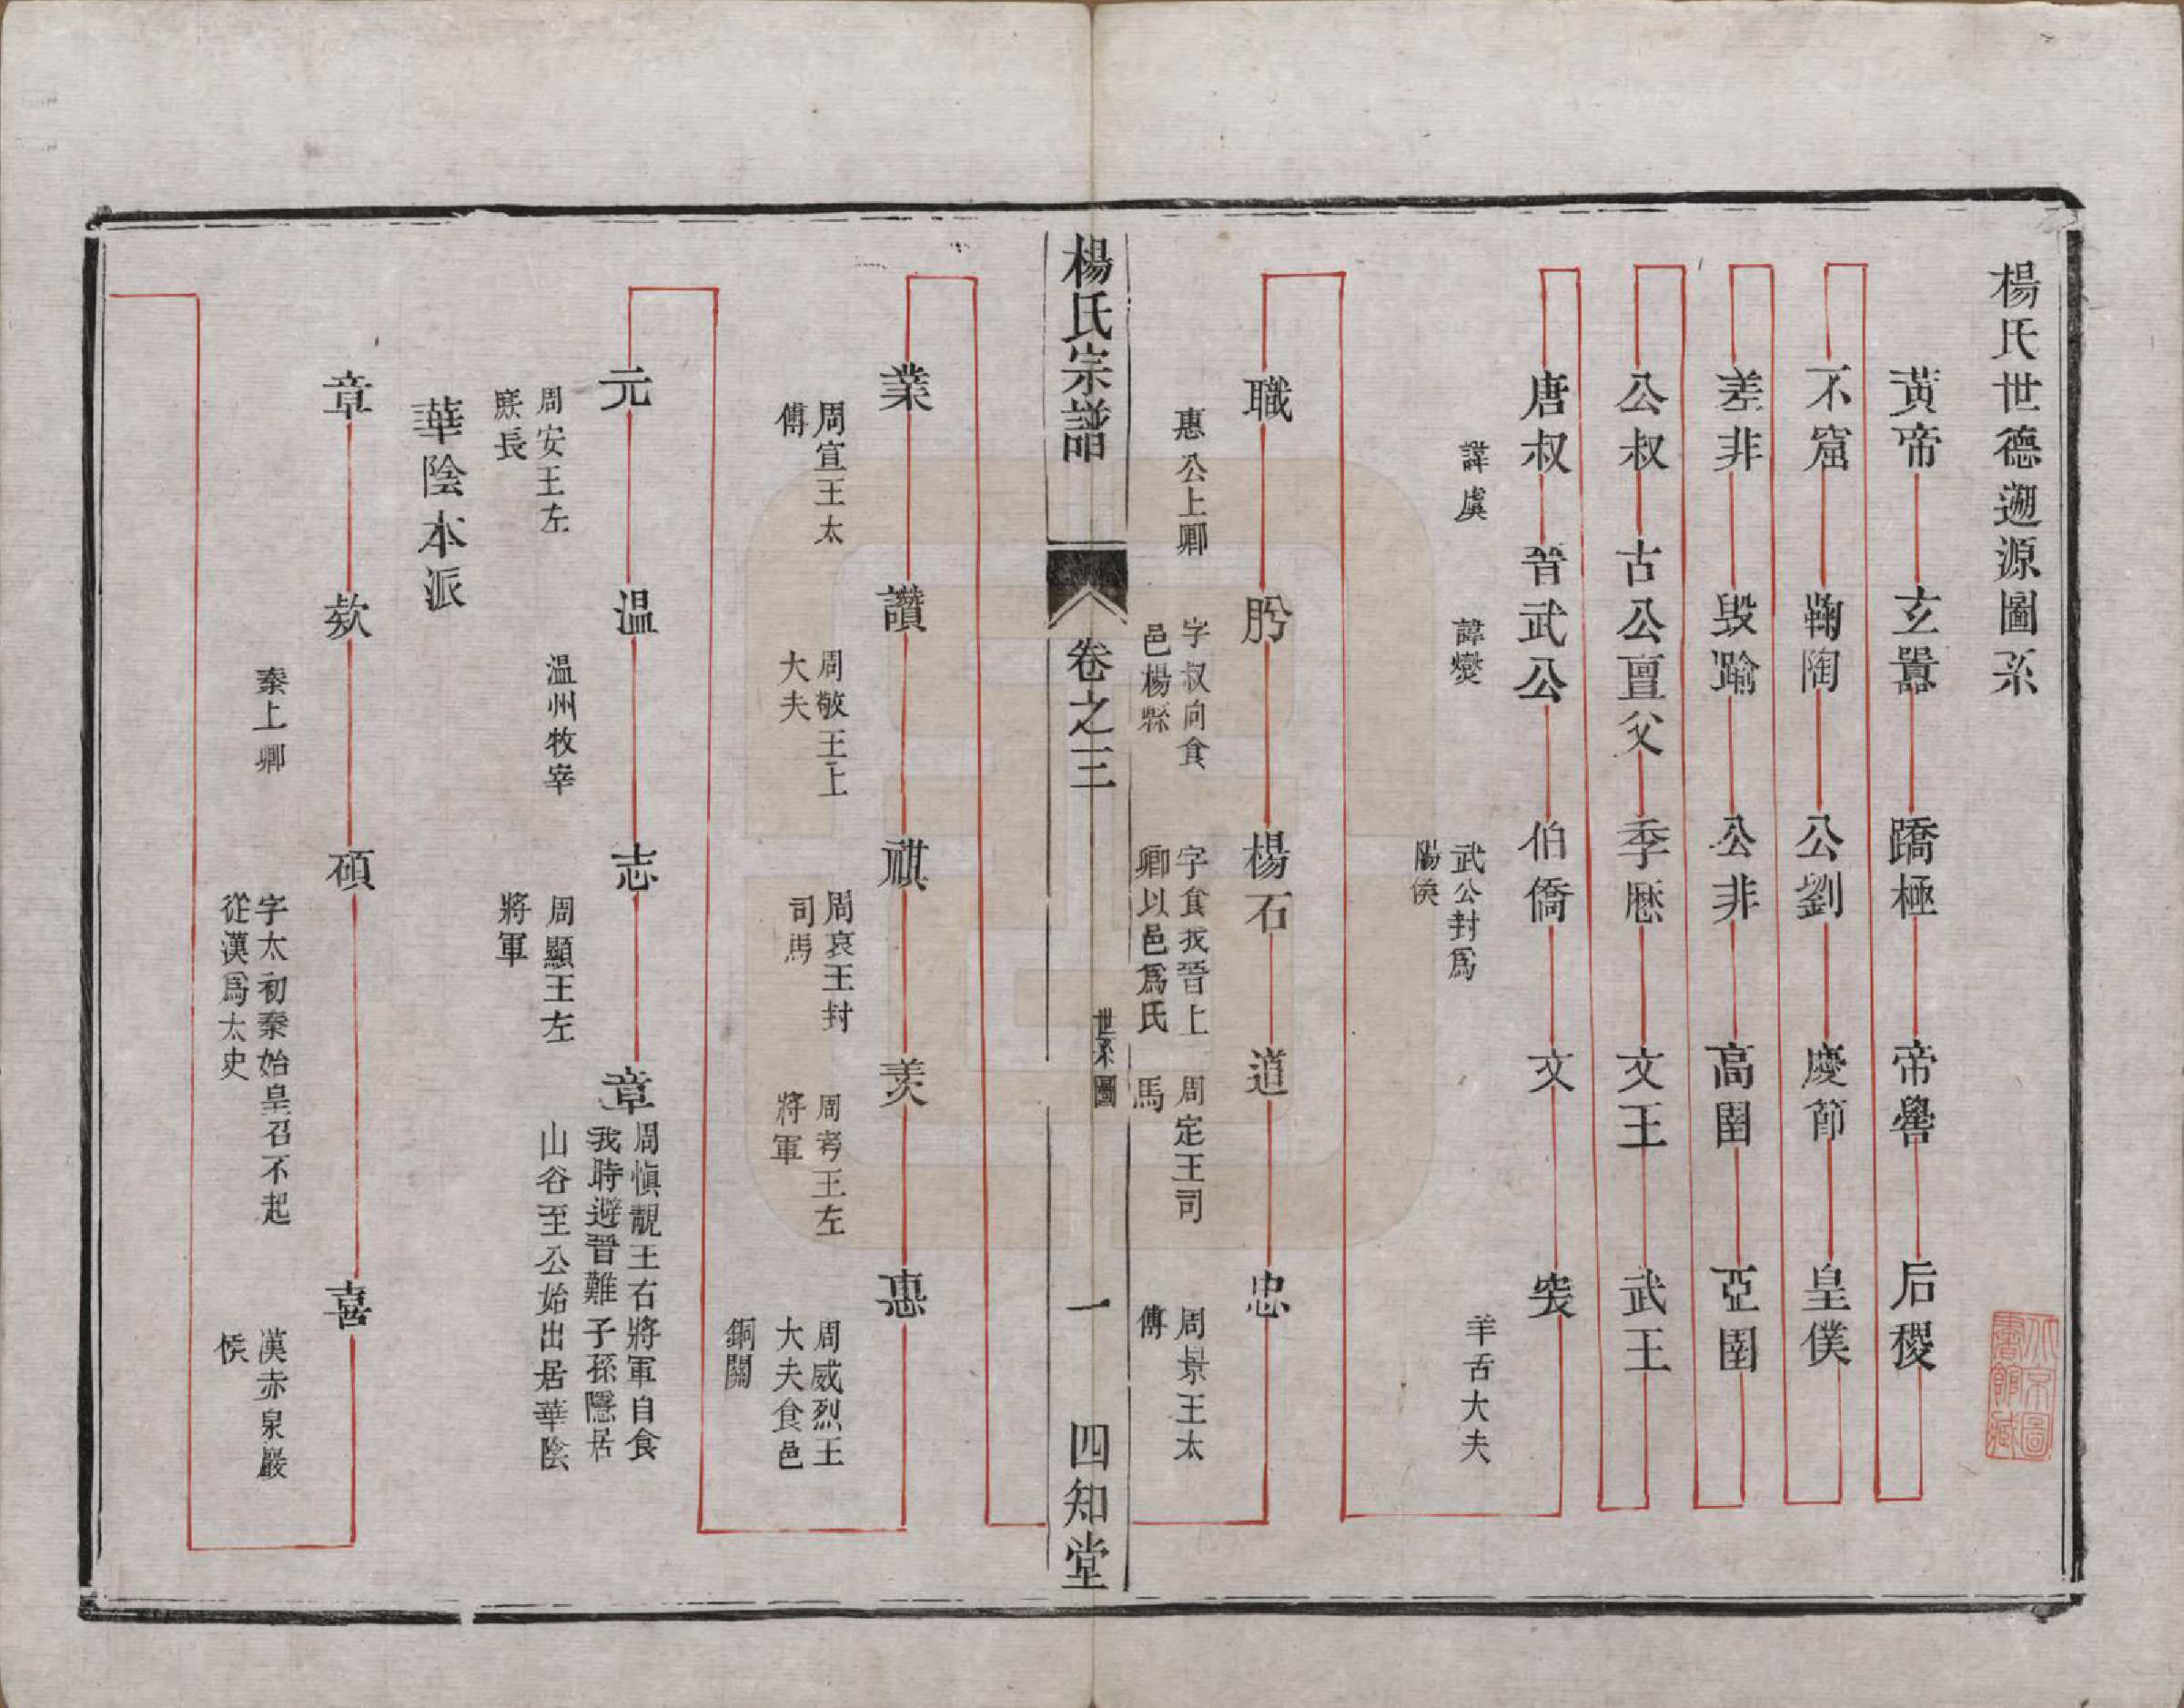 楊氏世德遡源圖系
黃帝 玄囂 蹻極 帝嚳 后稷
不窋 鞠陶 公劉 慶節 皇僕
差非 毀踰 公非 高圉 亞圉
公叔 古公亶父 季厯 文王 武王
唐叔 晉武公 伯僑 文 突
諱虞
諱燮
武公封爲
陽侯
羊舌大夫
職 肸 楊石 道 忠
惠公上卿
字叔向食
邑楊縣
字食我晉上
卿以邑爲氏
周定王司
馬
周景王太
傅
楊氏宗譜
卷之三
世系圖
一
四知堂
業 讚 祺 羙 惠
周宣王太
傅
周敬王上
大夫
周哀王封
司馬
周考王左
將軍
周威烈王
大夫食邑
銅關
元 温 志 章
周安王左
庶長
温州牧宰
周顯王左
將軍
周愼靚王右將軍自食
我時避晉難子孫隱居
山谷至公始出居華陰
華陰本派
章 欵 碩 喜
秦上卿
字太初秦始皇召不起
從漢爲太史
漢赤泉嚴
侯